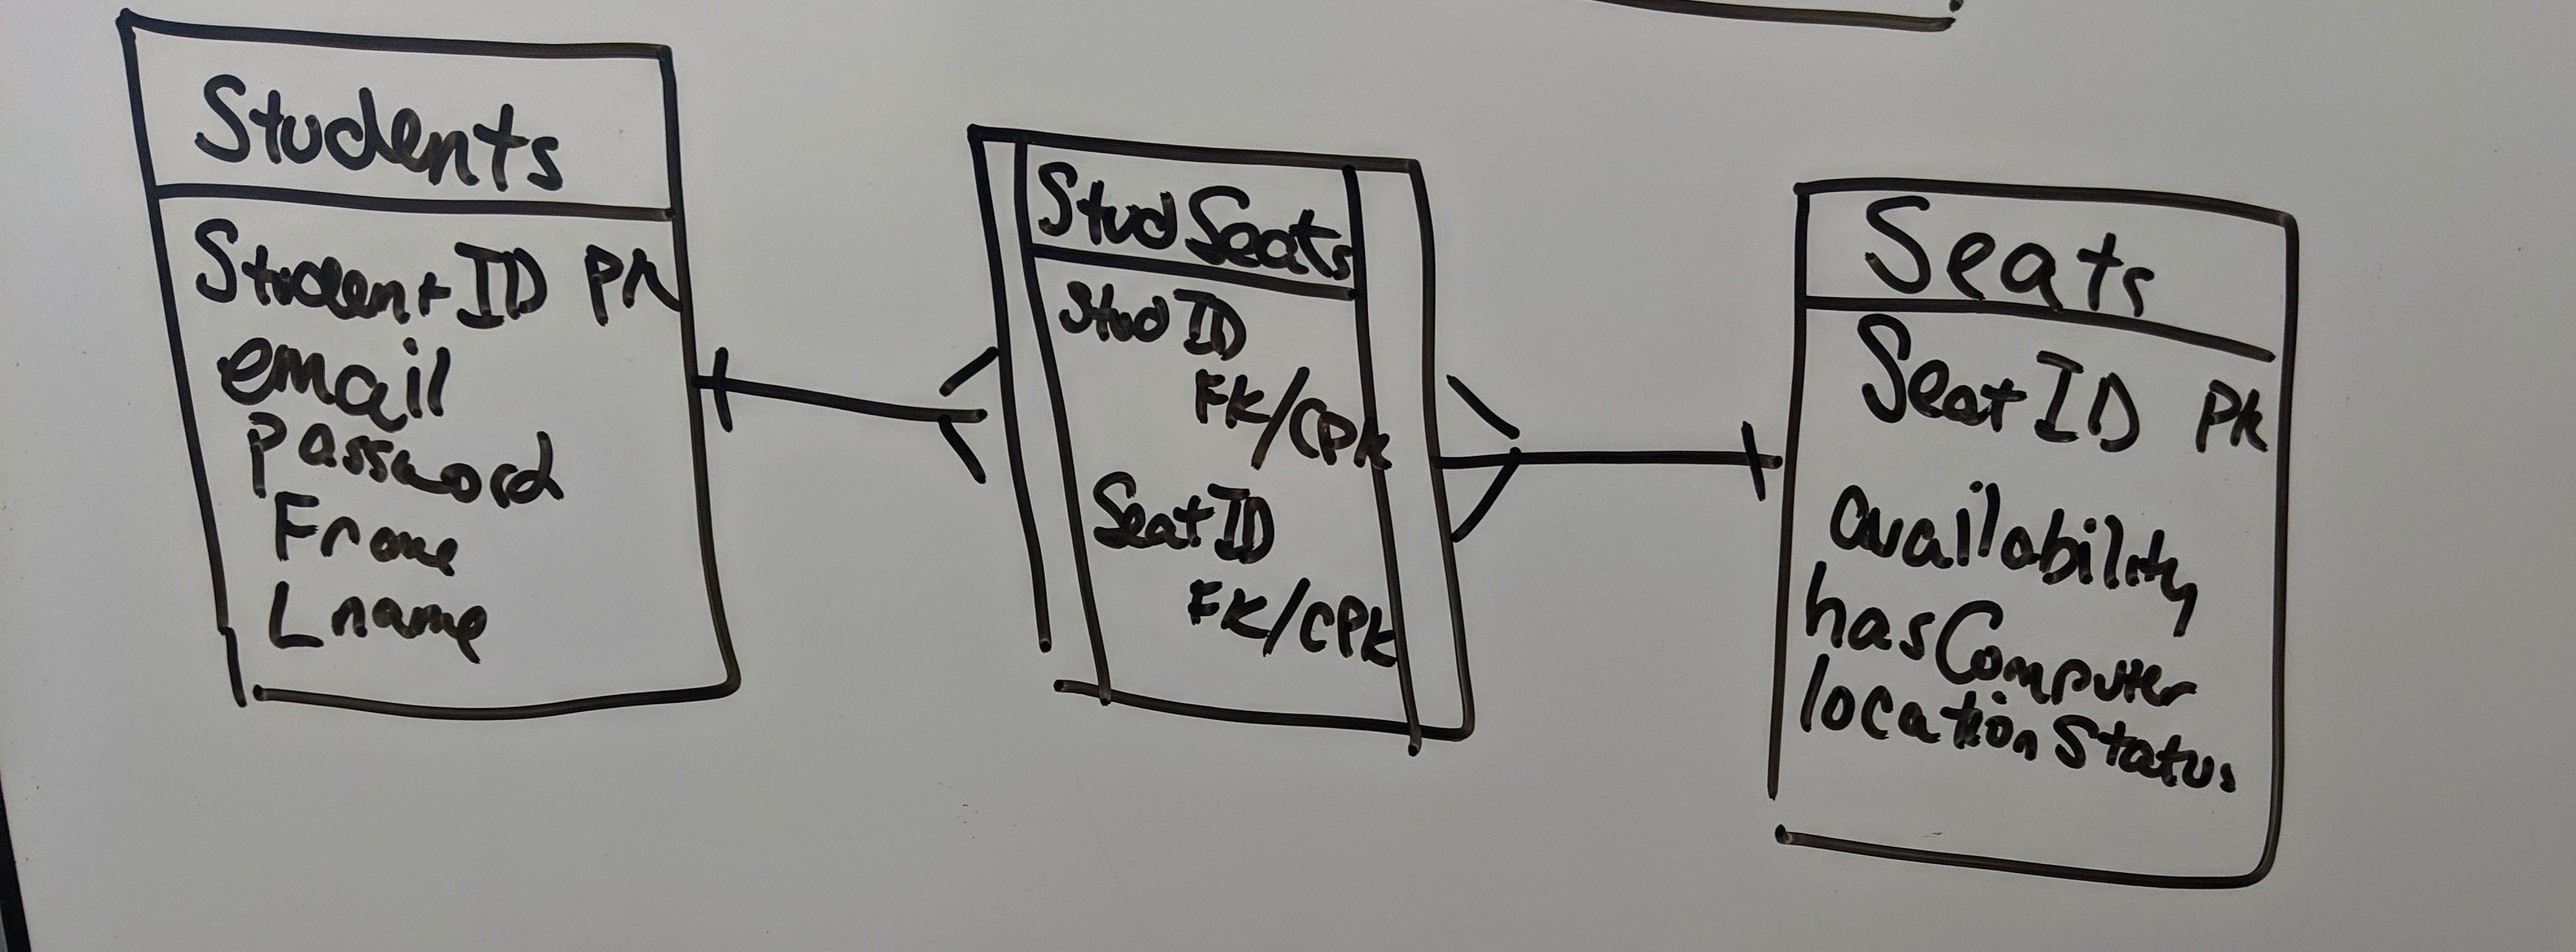 Students
Student ID PK
email
password
Fname
Lname
Stud Seats
Stud ID
FK/CPK
Seat ID
FK/CPK
Seats
Seat ID PK
availability
hasComputer
locationStatus